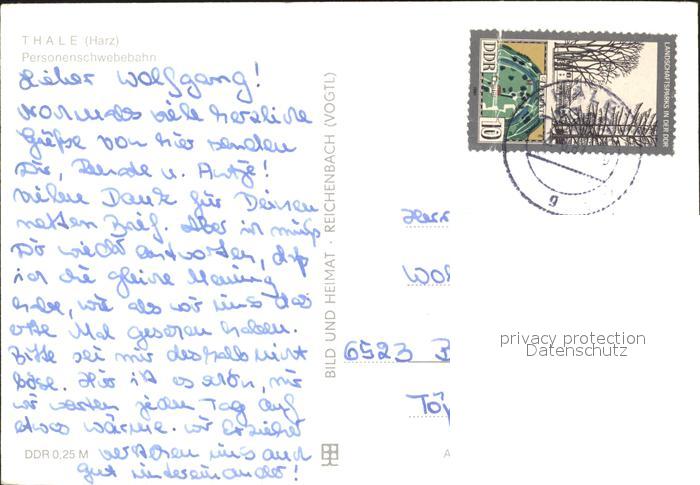 THALE (Harz)
Personenschwebebahn
Lieber Wolfgang!
Nochmals viele herzliche
Grüße von hier senden
Dir, Bende u. Antje!
Vielen Dank für Deinen
netten Brief. Aber ich muß
Dir wieder antworten, daß
ich die gleiche Meinung
habe, wie als wir uns das
erste Mal gesehen haben.
Bitte sei mir deshalb nicht
böse. Hier ist es schön, nur
wir warten jeden Tag auf
etwas Wärme. Wir Erzieher
verstehen uns auch
gut untereinander!
DDR 0,25 M
BILD UND HEIMAT · REICHENBACH (VOGTL)
DDR
10
LANDSCHAFTSPARKS IN DER DDR
Herr
Wol
6523 B
Töp
A
privacy protection
Datenschutz